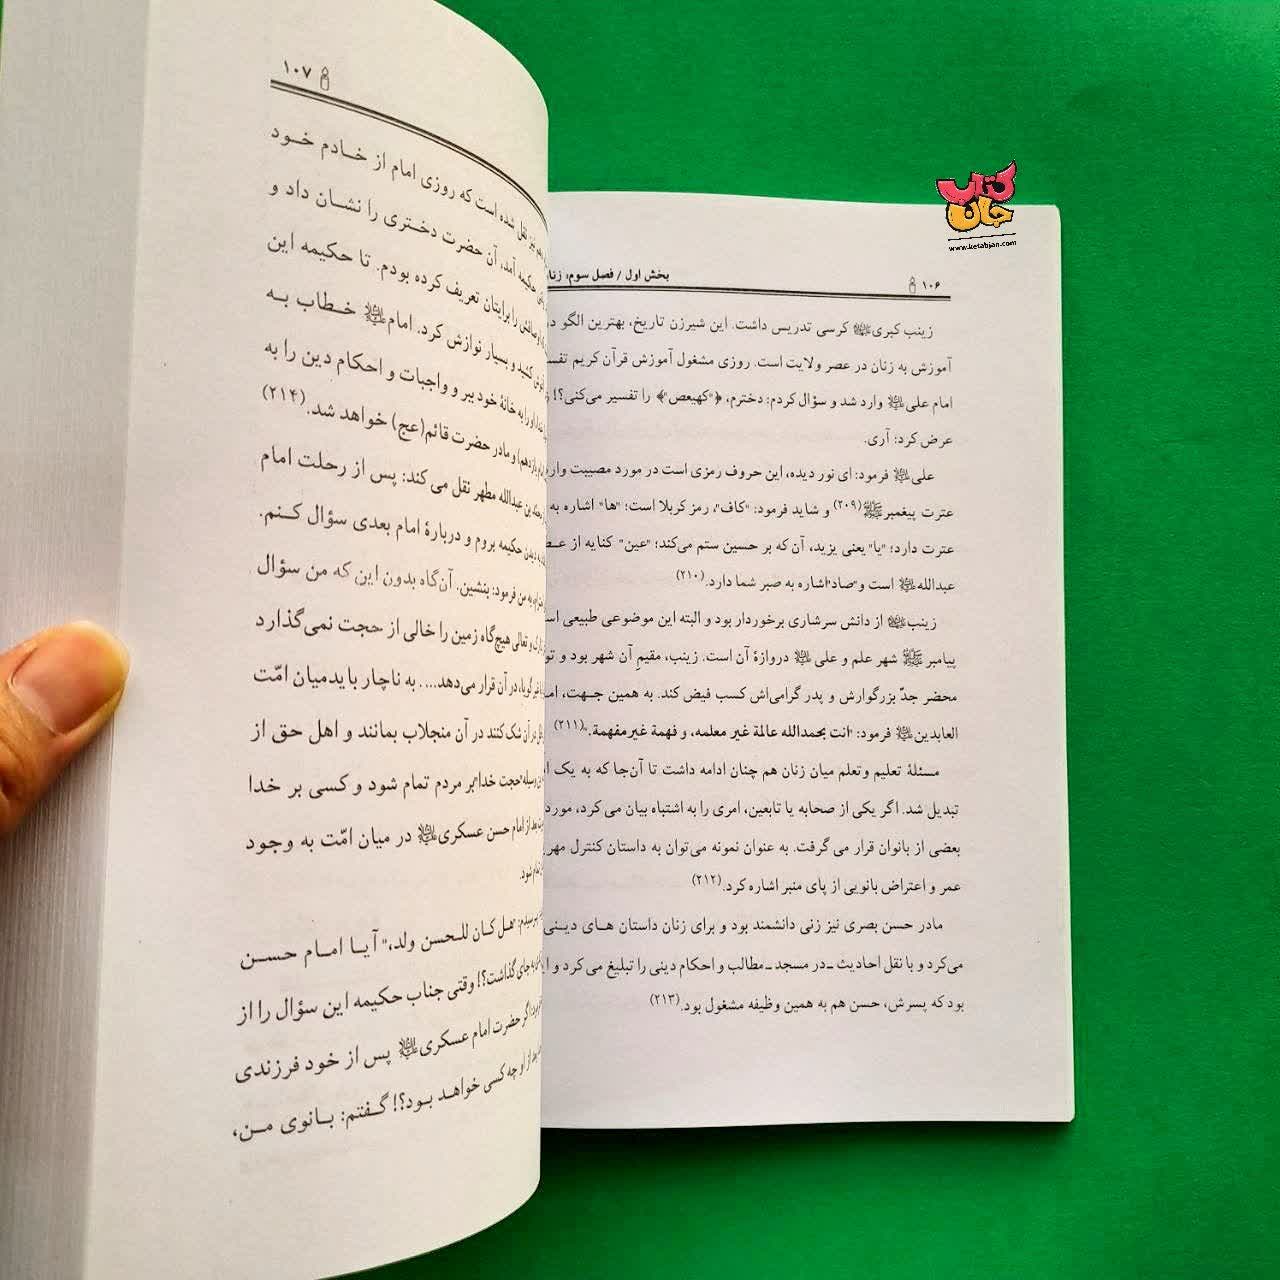 کتاب جان
www.ketabjan.com
۱۰۶
بخش اول / فصل سوم: زنان
زینب کبری کرسی تدریس داشت. این شیرزن تاریخ، بهترین الگو در
آموزش به زنان در عصر ولایت است. روزی مشغول آموزش قرآن کریم
امام علی وارد شد و سؤال کرد: دخترم، ﴿کهیعص﴾ را تفسیر می‌کنی؟!
عرض کرد: آری.
علی فرمود: ای نور دیده، این حروف رمزی است در مورد مصیبت
عترت پیغمبر(۲۰۹) و شاید فرمود: "کاف"، رمز کربلا است؛ "ها" اشاره به
عترت دارد؛ "یا" یعنی یزید، آن که بر حسین ستم می‌کند؛ "عین" کنایه از
عبدالله است و "صاد" اشاره به صبر شما دارد.(۲۱۰)
زینب از دانش سرشاری برخوردار بود و البته این موضوعی طبیعی
پیامبر شهر علم و علی دروازهٔ آن است. زینب، مقیم آن شهر بود و
محضر جدّ بزرگوارش و پدر گرامی‌اش کسب فیض کند. به همین جهت،
العابدین فرمود: "انت بحمدالله عالمة غیر معلمه، و فهمة غیرمفهمة."(۲۱۱)
مسئلهٔ تعلیم وتعلم میان زنان هم چنان ادامه داشت تا آن‌جا که به یک
تبدیل شد. اگر یکی از صحابه یا تابعین، امری را به اشتباه بیان می کرد، مورد
بعضی از بانوان قرار می گرفت. به عنوان نمونه می‌توان به داستان کنترل مهر
عمر و اعتراض بانویی از پای منبر اشاره کرد.(۲۱۲)
مادر حسن بصری نیز زنی دانشمند بود و برای زنان داستان های دینی
می‌کرد و با نقل احادیث ـ در مسجد ـ مطالب و احکام دینی را تبلیغ می کرد و
بود که پسرش، حسن هم به همین وظیفه مشغول بود.(۲۱۳)
۱۰۷
نقل شده است که روزی امام از خادم خود
حکیمه آمد، آن حضرت دختری را نشان داد و
را برایتان تعریف کرده بودم. تا حکیمه این
کشید و بسیار نوازش کرد. امام خطاب به
او را به خانهٔ خود ببر و واجبات و احکام دین را به
و مادر حضرت قائم(عج) خواهد شد.(۲۱۴)
بن عبدالله مطهر نقل می کند: پس از رحلت امام
دیدن حکیمه بروم و دربارهٔ امام بعدی سؤال کنم.
به من فرمود: بنشین. آن‌گاه بدون این که من سؤال
و تعالی هیچ‌گاه زمین را خالی از حجت نمی‌گذارد
در آن قرار می‌دهد... . به ناچار باید میان امّت
در آن شک کنند در آن منجلاب بمانند و اهل حق از
"حجت خدا" بر مردم تمام شود و کسی بر خدا
بعد از امام حسن عسکری در میان امّت به وجود
شود.
پرسیدم: "هل کان للحسن ولد،" آیا امام حسن
به جای گذاشت؟! وقتی جناب حکیمه این سؤال را از
اگر حضرت امام عسکری پس از خود فرزندی
بعد از او چه کسی خواهد بود؟! گفتم: بانوی من،